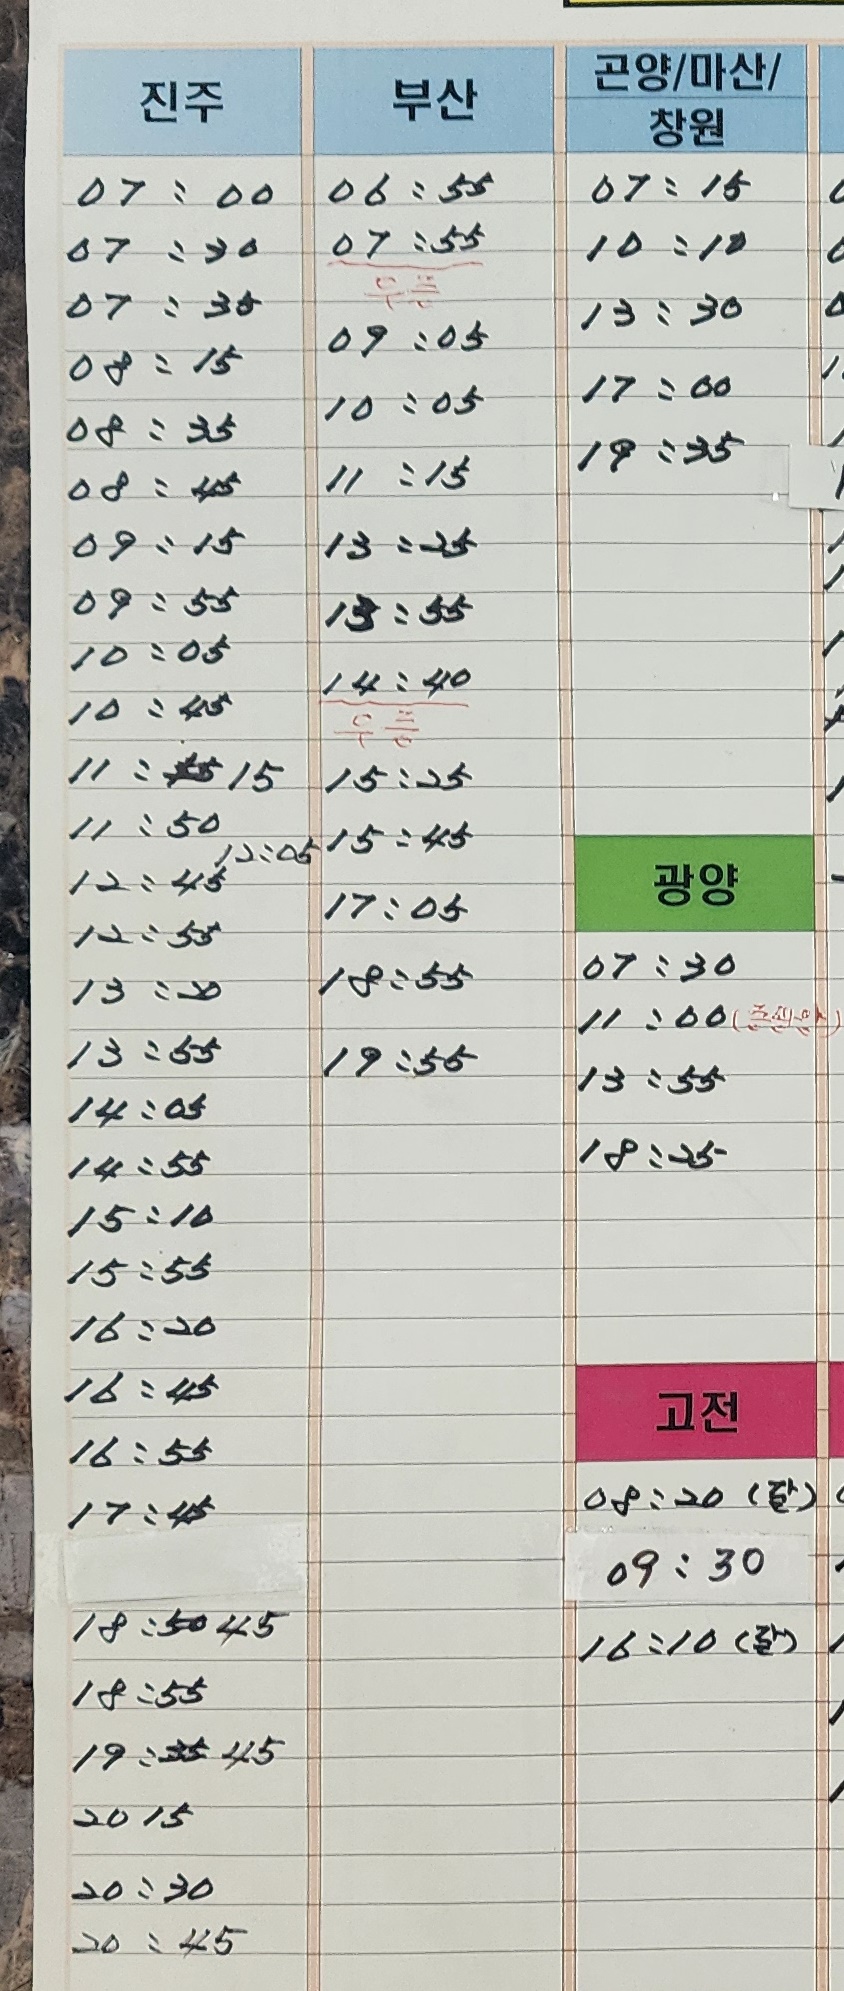 진주
07:00
07:30
07:35
08:15
08:35
08:45
09:15
09:55
10:05
10:45
11: 15
11:50
12:05
12:45
12:55
13:20
13:55
14:05
14:55
15:10
15:55
16:20
16:45
16:55
17:45
18:50 45
18:55
19:35 45
20 15
20:30
20:45
부산
06:55
07:55
우등
09:05
10:05
11:15
13:25
13:55
14:40
우등
15:25
15:45
17:05
18:55
19:55
곤양/마산/
창원
07:15
10:10
13:30
17:00
19:35
광양
07:30
11:00
13:55
18:25
고전
08:20
09:30
16:10